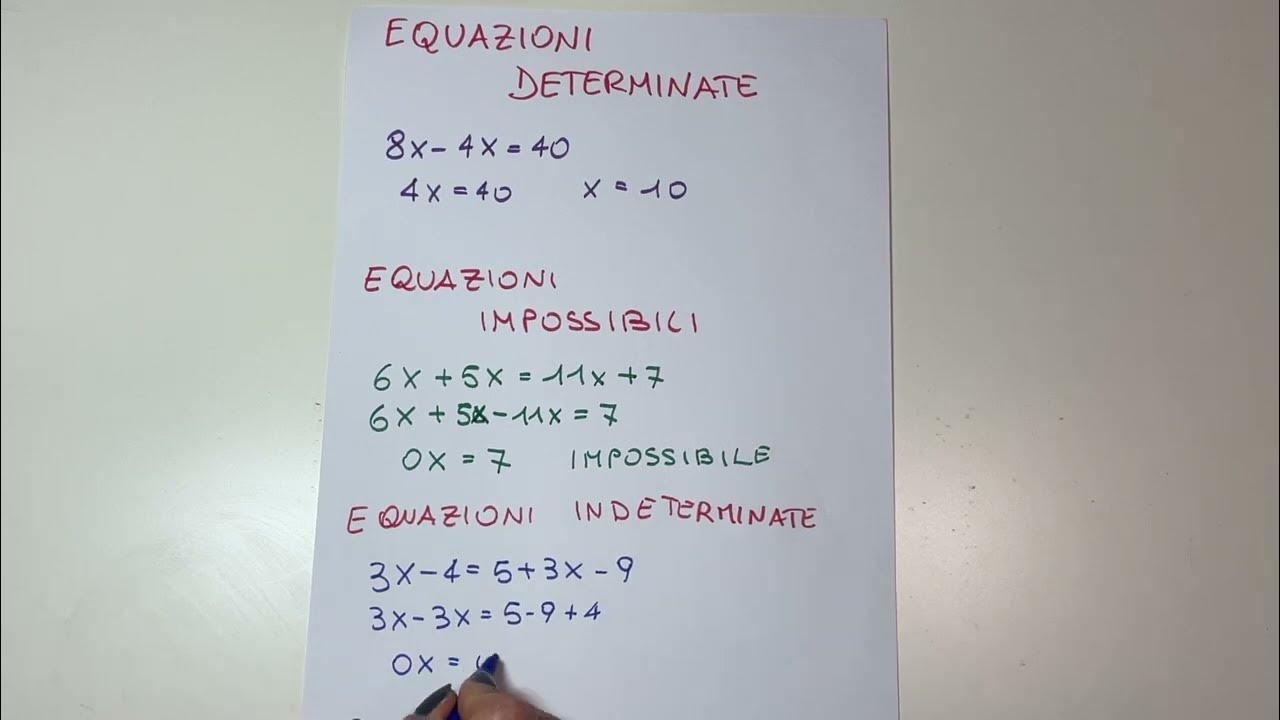 EQUAZIONI
DETERMINATE
8x - 4x = 40
4x = 40 x = 10
EQUAZIONI
IMPOSSIBILI
6x + 5x = 11x + 7
6x + 5x - 11x = 7
0x = 7 IMPOSSIBILE
EQUAZIONI INDETERMINATE
3x - 4 = 5 + 3x - 9
3x - 3x = 5 - 9 + 4
0x =